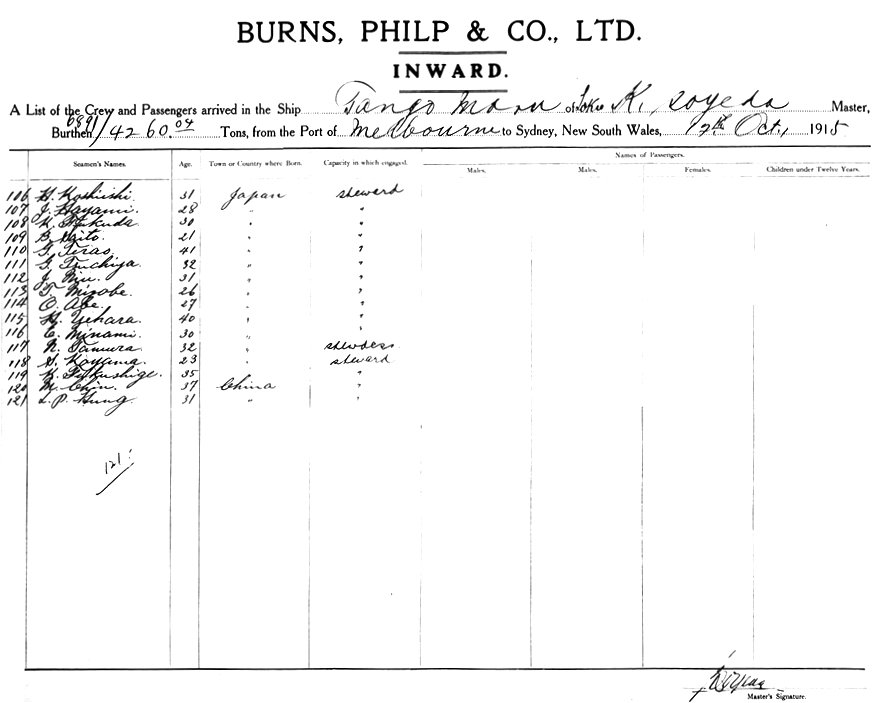 BURNS, PHILP & CO., LTD.
INWARD.
A List of the Crew and Passengers arrived in the Ship Tango Maru of Tokio K. Soyeda Master,
Burthen 6891/4260.04 Tons, from the Port of Melbourne to Sydney, New South Wales, 12th Oct, 1915
Seamen's Names. Age. Town or Country where Born. Capacity in which engaged. Names of Passengers.
Males. Males. Females. Children under Twelve Years.
106 H. Koshiishi. 31 Japan steward
107 J. Hayami. 28 " "
108 K. Fukuda. 30 " "
109 B. Saito. 21 " "
110 G. Terao. 41 " "
111 G. Tsuchiya. 32 " "
112 J. Niu. 31 " "
113 T. Misobe. 26 " "
114 O. Abe. 27 " "
115 H. Yehara. 40 " "
116 E. Minami. 30 " "
117 N. Tamura. 32 " stewdess
118 S. Koyama. 23 " steward
119 K. Fukushige. 35 "
120 M. Chin. 37 China "
121 L. P. Hung. 31 " "
121
Master's Signature.